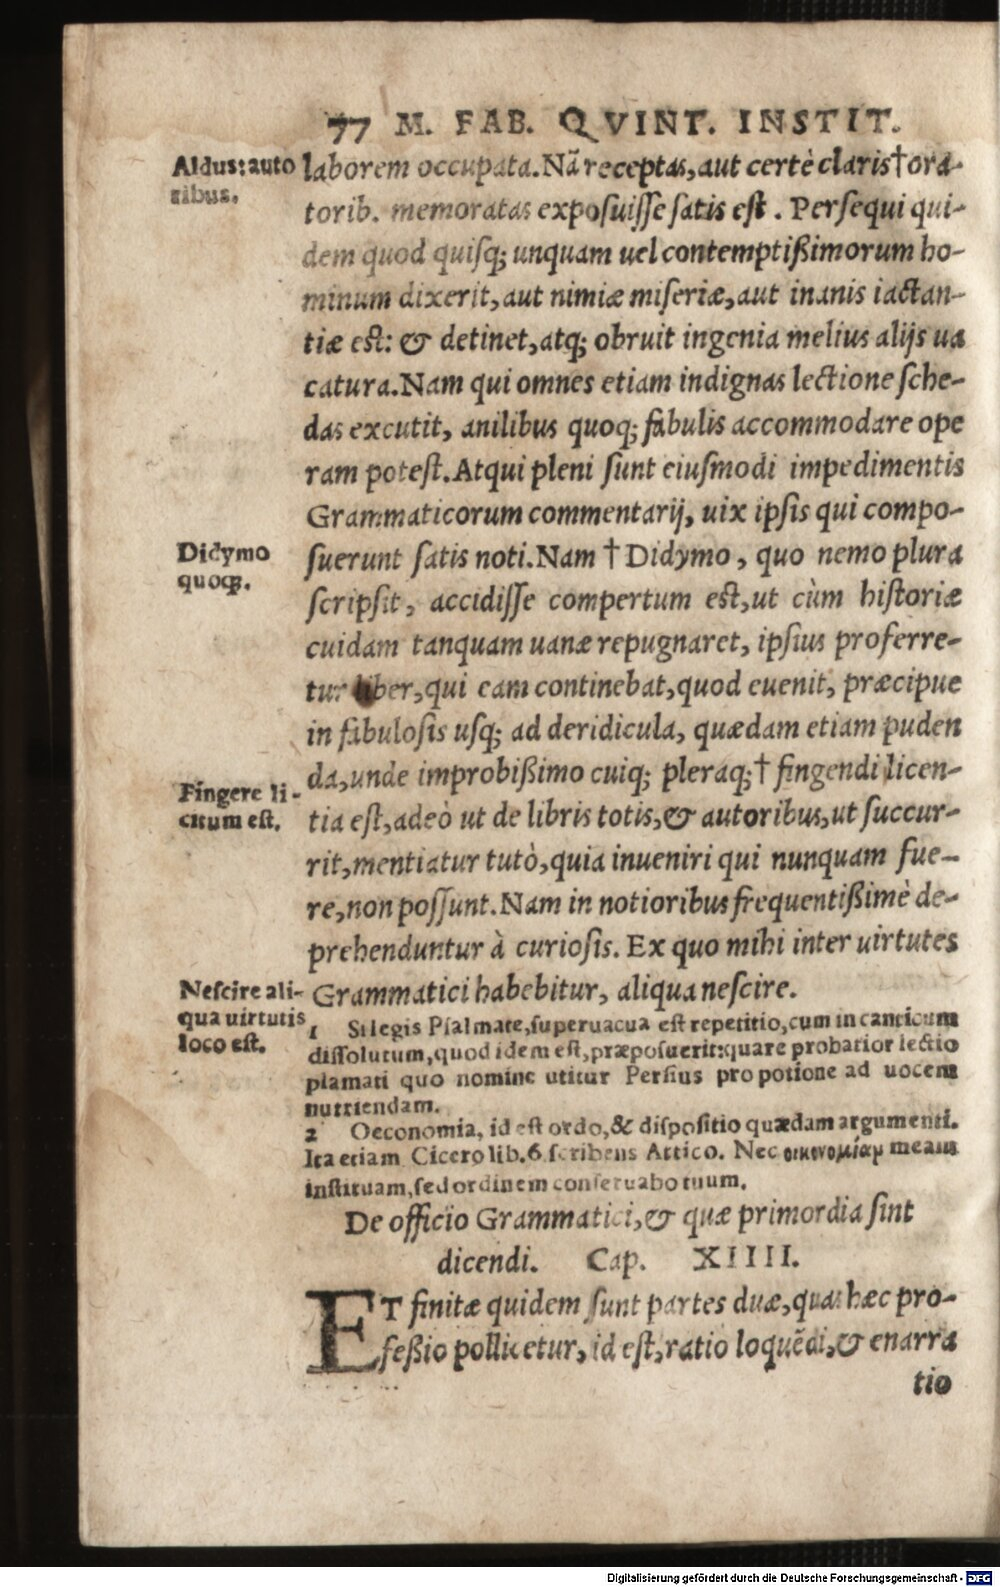 77 M. FAB. QVINT. INSTIT.
Aldus: auto
ribus.
laborem occupata. Nã receptas, aut certè claris † ora-
torib. memoratas exposuisse satis est. Persequi qui-
dem quod quisq; unquam uel contemptißimorum ho-
minum dixerit, aut nimiæ miseriæ, aut inanis iactan-
tiæ est: & detinet, atq; obruit ingenia melius alijs ua
catura. Nam qui omnes etiam indignas lectione sche-
das excutit, anilibus quoq; fabulis accommodare ope
ram potest. Atqui pleni sunt eiusmodi impedimentis
Grammaticorum commentarij, uix ipsis qui compo-
Didymo
quoq;.
suerunt satis noti. Nam † Didymo, quo nemo plura
scripsit, accidisse compertum est, ut cùm historiæ
cuidam tanquam uanæ repugnaret, ipsius proferre-
tur liber, qui eam continebat, quod euenit, præcipue
in fabulosis usq; ad deridicula, quædam etiam puden
Fingere li-
citum est.
da, unde improbißimo cuiq; pleraq; † fingendi licen-
tia est, adeò ut de libris totis, & autoribus, ut succur-
rit, mentiatur tutò, quia inueniri qui nunquam fue-
re, non possunt. Nam in notioribus frequentißimè de-
prehenduntur à curiosis. Ex quo mihi inter uirtutes
Nescire ali-
qua uirtutis
loco est.
Grammatici habebitur, aliqua nescire.
1 Si legis Psalmate, superuacua est repetitio, cum in canticum
dissolutum, quod idem est, præposuerit: quare probatior lectio
plamati quo nomine utitur Persius pro potione ad uocem
nutriendam.
2 Oeconomia, id est ordo, & dispositio quædam argumenti.
Ita etiam Cicero lib. 6 scribens Attico. Nec οικονομίαμ meam
instituam, sed ordinem conseruabo tuum.
De officio Grammatici, & quæ primordia sint
dicendi. Cap. XIIII.
ET finitæ quidem sunt partes duæ, quas hæc pro-
feßio pollicetur, id est, ratio loquẽdi, & enarra
tio
Digitalisierung gefördert durch die Deutsche Forschungsgemeinschaft - DFG